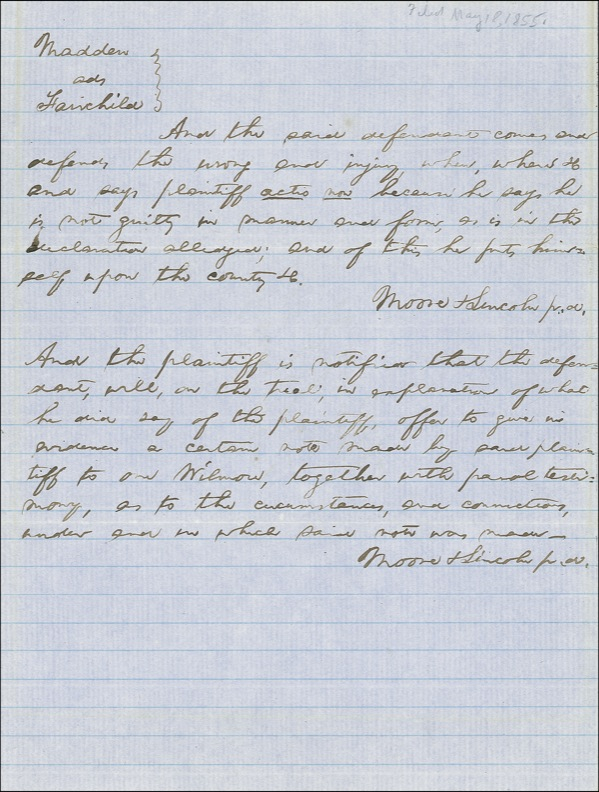 Filed May 18, 1855.
Madden
ads
Fairchild
And the said defendant comes and
defends the wrong and injury, when, where &c
and says plaintiff actio non because he says he
is not guilty in manner and form, as is in the
declaration alledged; and of this he puts him=
self, upon the county &c.
Moore & Lincoln p.d.
And the plaintiff is notified that the defen=
dant, will, on the trial, in explanation of what
he did say of the plaintiff, offer to give in
evidence a certain note made by said plain=
tiff to one Wilmore, together with parol testi=
mony, as to the circumstances, and connections,
under and in which said note was made—
Moore & Lincoln p.d.